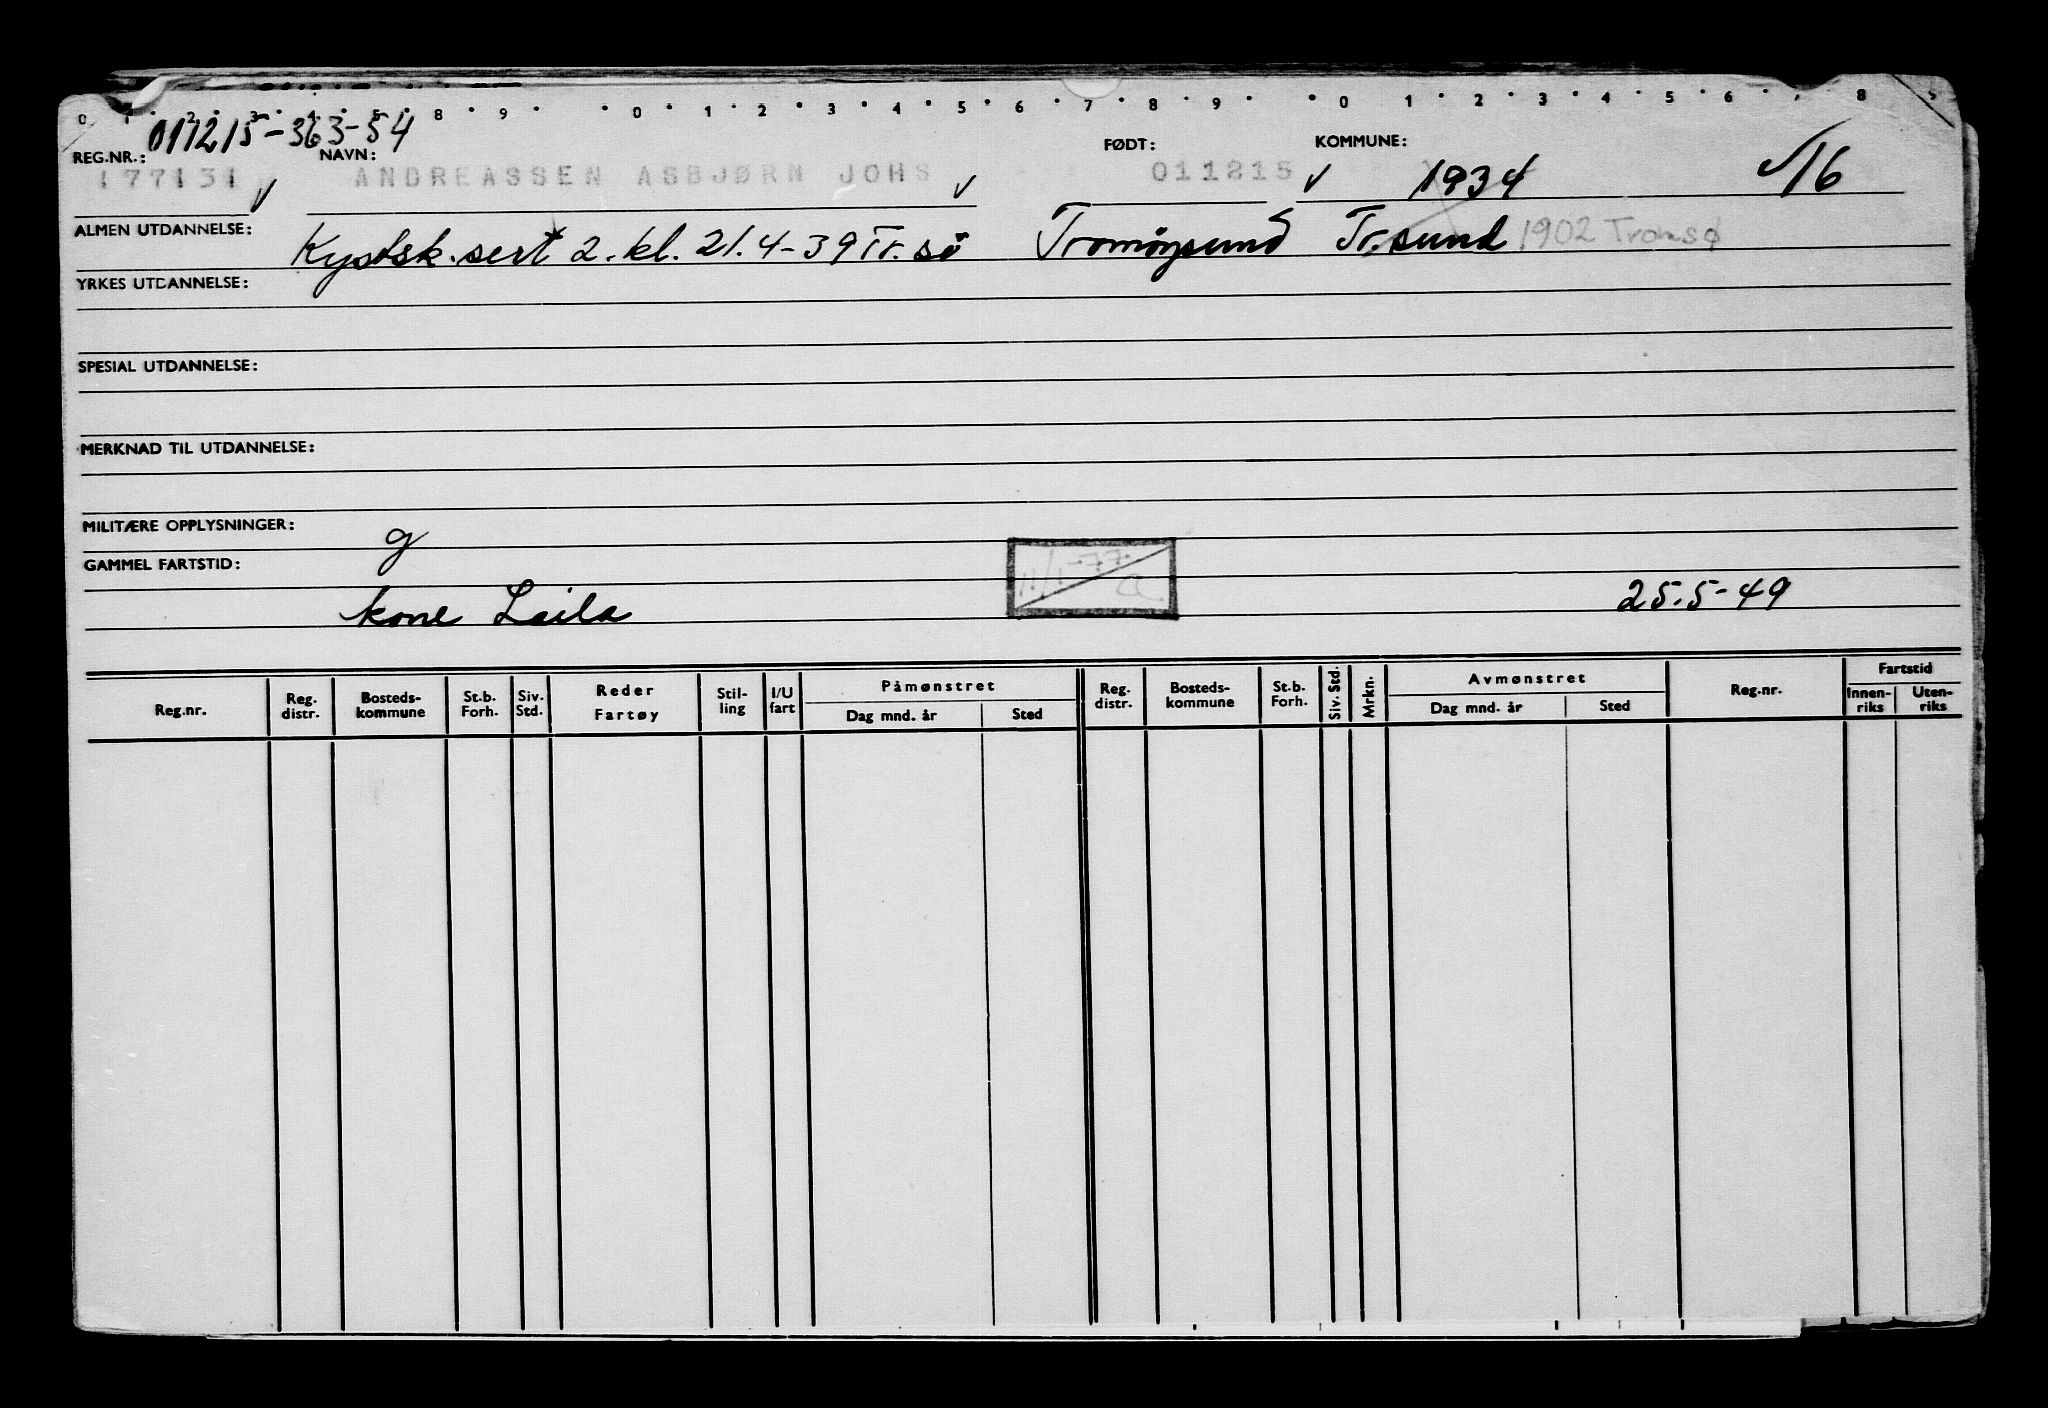 0 1 2 3 4 5 8 9 0 1 2 3 4 5 6 7 8 9 0 1 2 3 4 5 6 7 8
011215-363-54
REG.NR.: NAVN: FØDT: KOMMUNE:
177131 ANDREASSEN ASBJØRN JOHS 011215 1934 16
ALMEN UTDANNELSE: Kystsk.sert 2.kl. 21.4-39 Tr.sö Tromöysund Tr.sund 1902 Tromsø
YRKES UTDANNELSE:
SPESIAL UTDANNELSE:
MERKNAD TIL UTDANNELSE:
MILITÆRE OPPLYSNINGER: g
GAMMEL FARTSTID: 11/1-77
kone Laila 25.5-49
Reg.nr. Reg. distr. Bosteds-kommune St.b. Forh. Siv. Std. Reder Fartøy Stil-ling I/U fart Påmønstret Dag mnd. år Sted Reg. distr. Bosteds-kommune St.b. Forh. Siv. Std. Mrkn. Avmønstret Dag mnd. år Sted Reg.nr. Fartstid Innen-riks Uten-riks